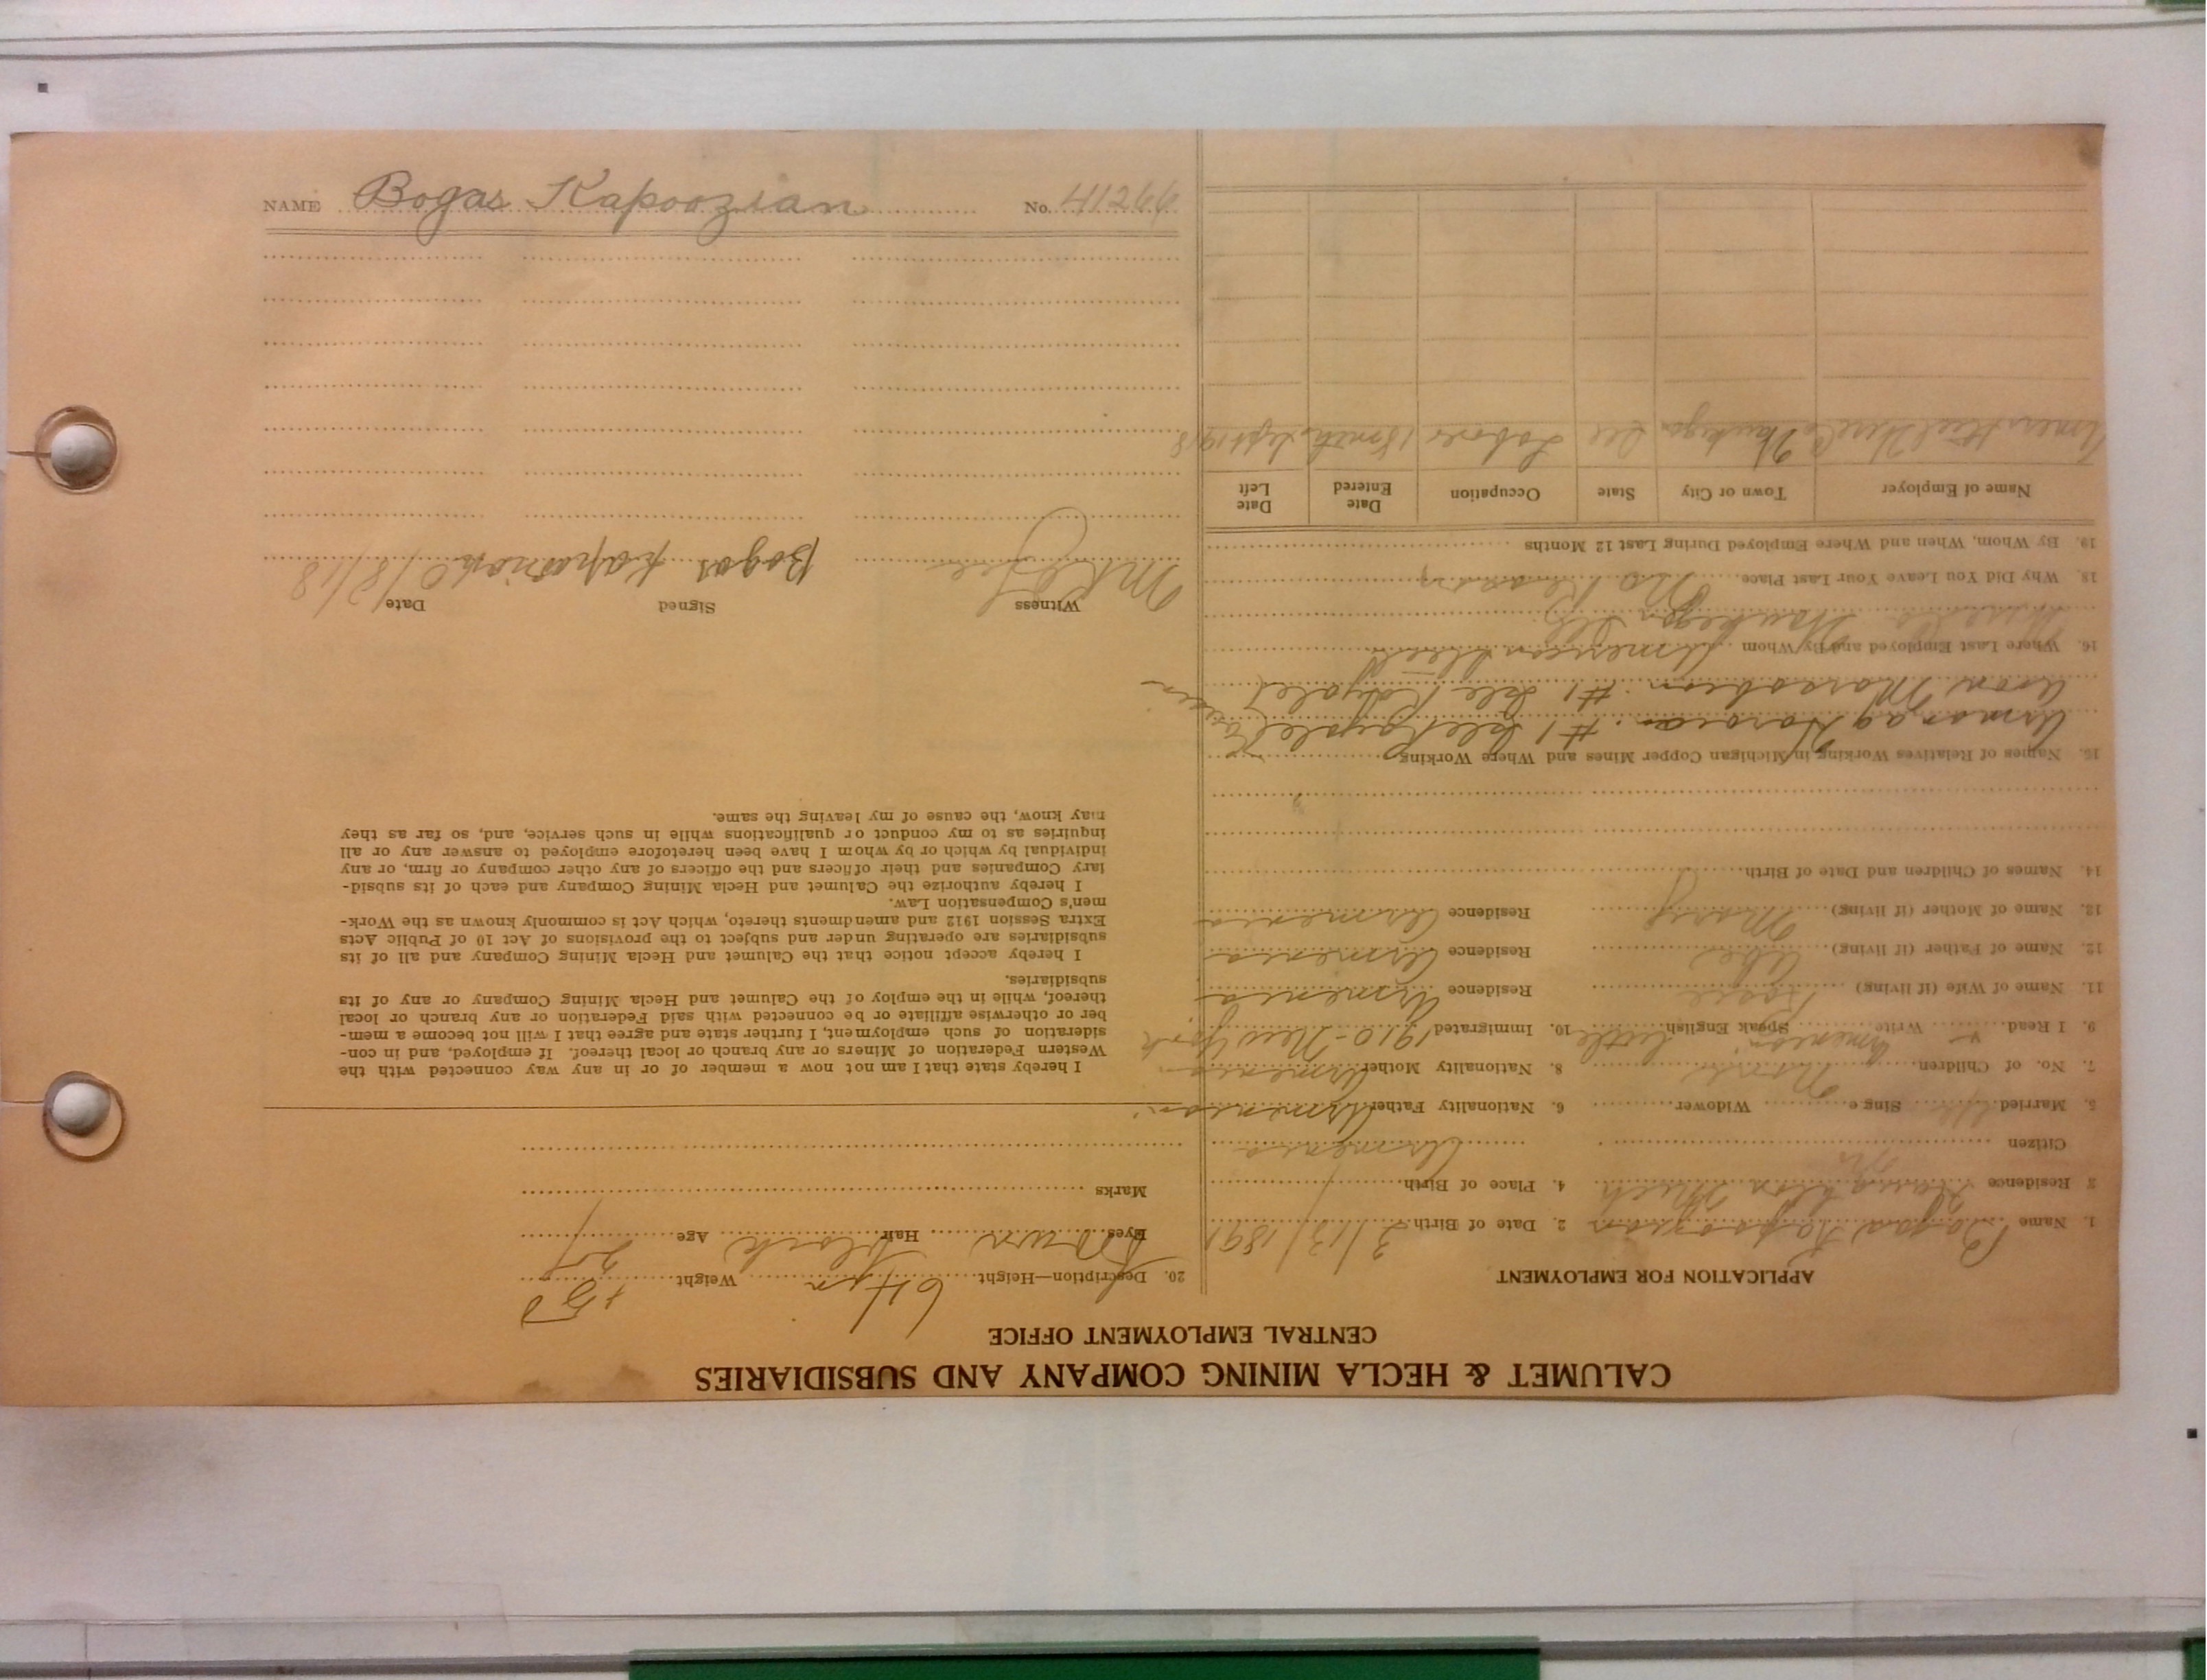 NAME Bogas Kapoozian No. 41266
CALUMET & HECLA MINING COMPANY AND SUBSIDIARIES
CENTRAL EMPLOYMENT OFFICE
APPLICATION FOR EMPLOYMENT
1. Name Bogas Kapoozian 2. Date of Birth 3/13/1891
3 Residence Houghton Mich 4. Place of Birth
Citizen Armenia
5. Married Single Widower 6. Nationality Father Armenian
7. No. of Children None 8. Nationality Mother Armenian
9. I Read Write Armenian Speak English little 10. Immigrated 1910 - New York
11. Name of Wife (if living) Rose Residence Armenia
12. Name of Father (if living) Abe Residence Armenia
13. Name of Mother (if living) Mary Residence Armenia
14. Names of Children and Date of Birth
15. Names of Relatives Working in Michigan Copper Mines and Where Working
#1 Isle Royale
#1 Isle Royale
16. Where Last Employed and By Whom American Steel
Waukegan Ill
18. Why Did You Leave Your Last Place No Reason
19. By Whom, When and Where Employed During Last 12 Months
Name of Employer Town or City State Occupation Date Entered Date Left
Amer Steel Waukegan Ill Labor Sept 1918
20. Description—Height 6 ft Weight 150
Eyes Brown Hair black Age 27
Marks
I hereby state that I am not now a member of or in any way connected with the
Western Federation of Miners or any branch or local thereof. If employed, and in con-
sideration of such employment, I further state and agree that I will not become a mem-
ber or otherwise affiliate or be connected with said Federation or any branch or local
thereof, while in the employ of the Calumet and Hecla Mining Company or any of its
subsidiaries.
I hereby accept notice that the Calumet and Hecla Mining Company and all of its
subsidiaries are operating under and subject to the provisions of Act 10 of Public Acts
Extra Session 1912 and amendments thereto, which Act is commonly known as the Work-
men's Compensation Law.
I hereby authorize the Calumet and Hecla Mining Company and each of its subsid-
iary Companies and their officers and the officers of any other company or firm, or any
individual by which or by whom I have been heretofore employed to answer any or all
inquiries as to my conduct or qualifications while in such service, and, so far as they
may know, the cause of my leaving the same.
Witness Signed Date
Bogos Kapozian 10/8/18